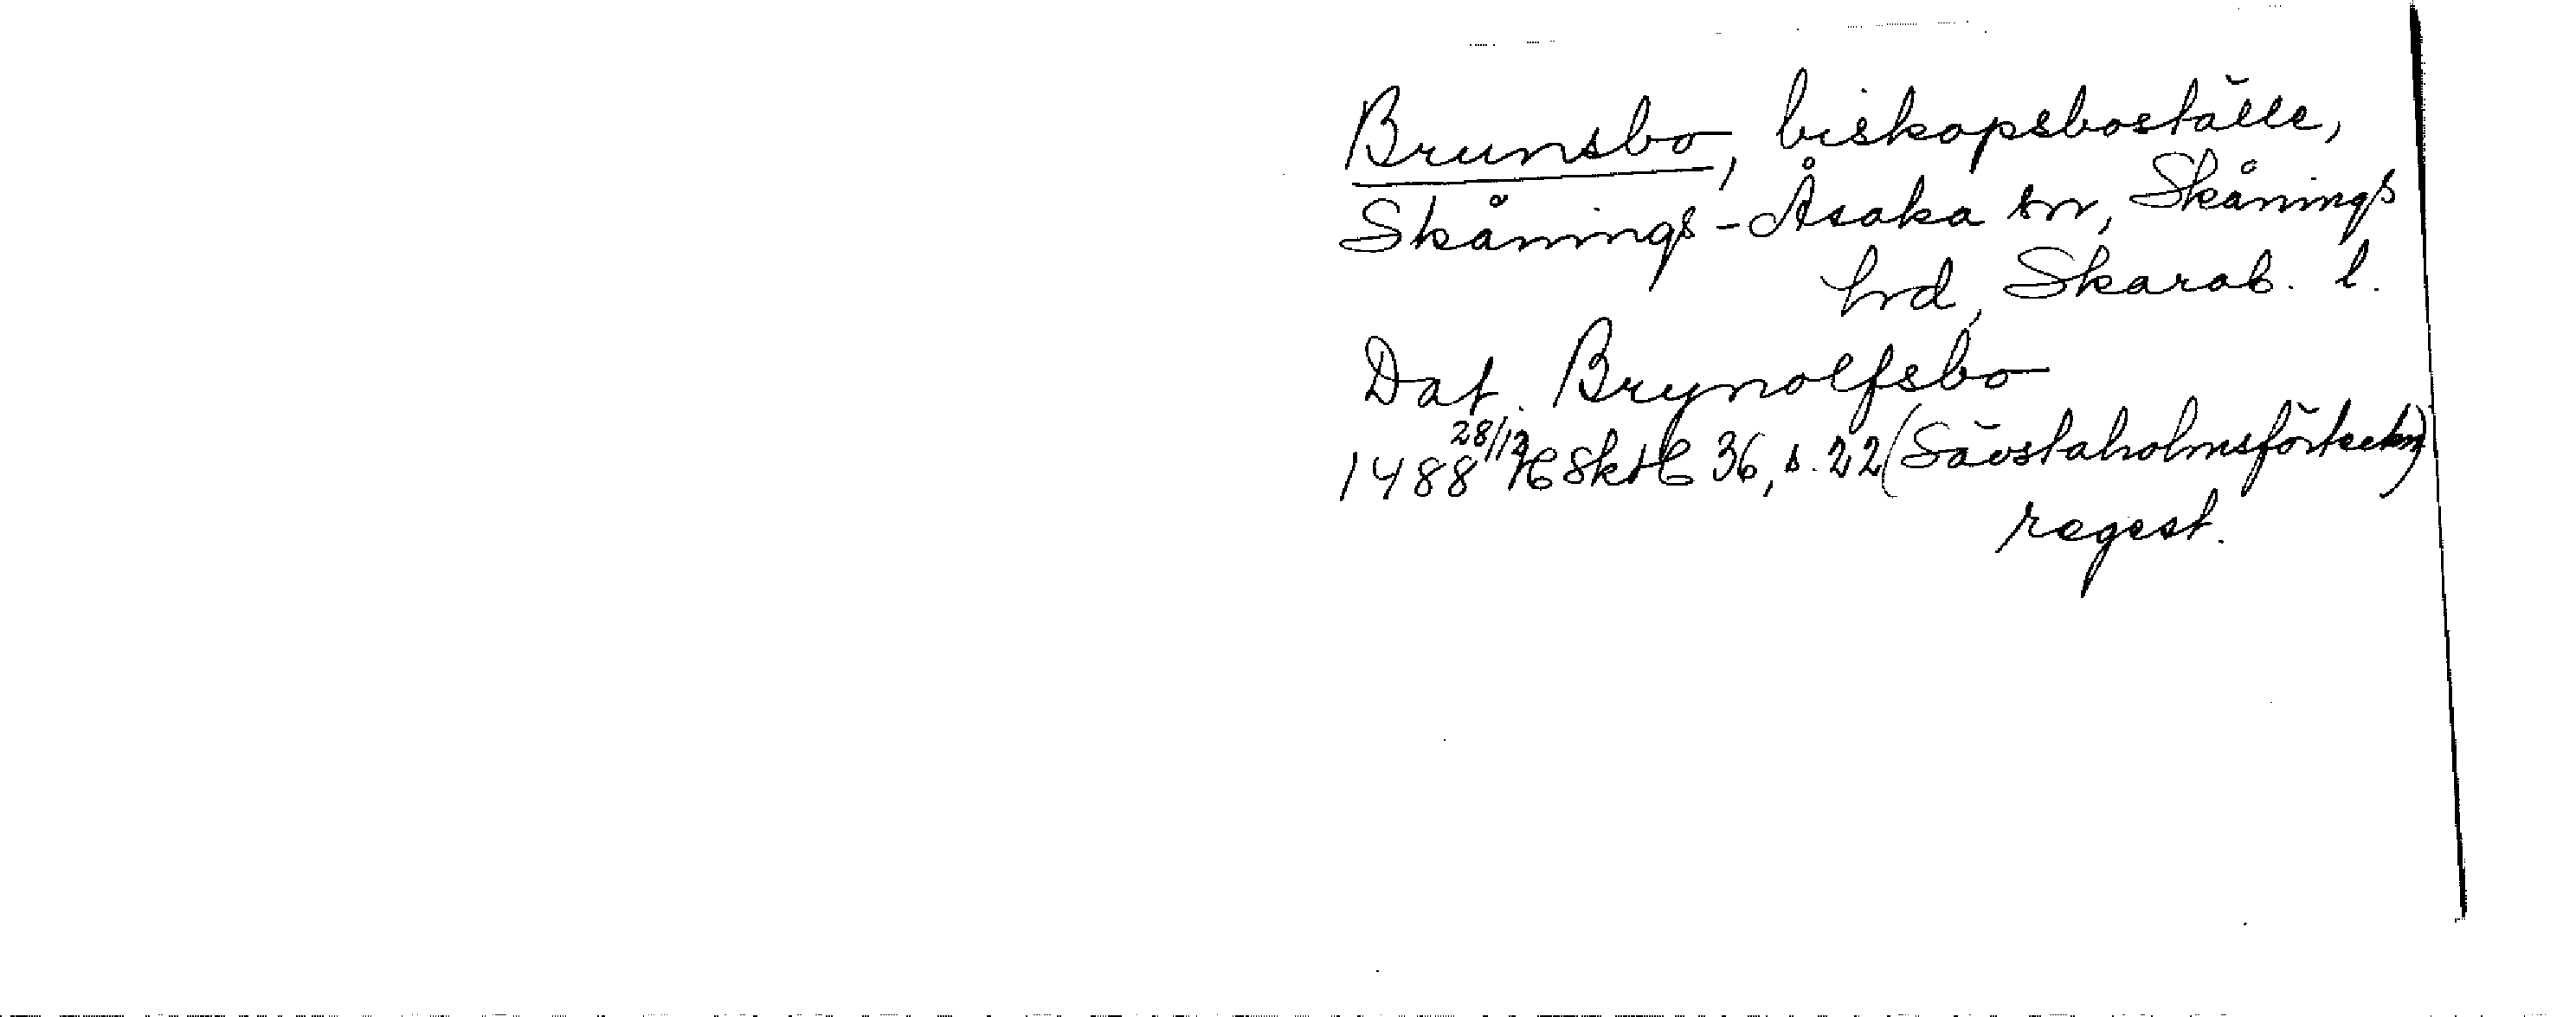 Brunsbo, biskopsboställe,
Skånings-Åsaka sn, Skånings
hrd, Skarab. l.
Dat. Brynolfsbo
1488 28/12 HSkH 36, s. 22 (Sävstaholmsförteckn)
regest.